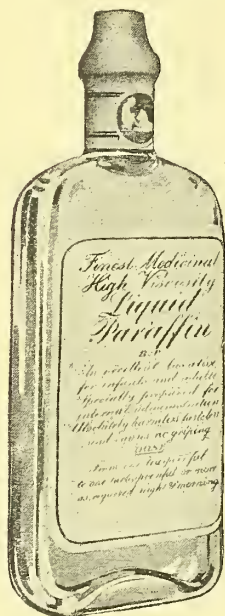 Finest Medicinal
High Viscosity
Liquid
Paraffin
B.P.
An excellent laxative
for infants and adults
Specially prepared for
internal administration
Absolutely harmless
and causes no griping
DOSE
From one teaspoonful
to one tablespoonful or more
as required night & morning